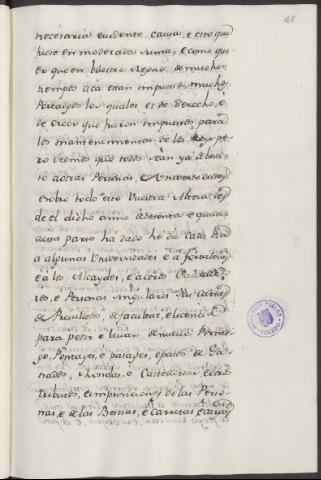 48
necesaria evidente causa, e esto que
fuese en moderada suma, e como qui-
er que en vuestros Reynos de muchos
tiempos acá estan impuestos muchos
Portadgos los quales es de derecho, e
de creer que fueron impuestos para
los mantenimientos de los pe-
ro vemos que todos sean ya
to a otras Personas, e Universidades
e sobre todo esto Vuestra Alteza des-
de el dicho anno de sesenta e quatro
a esta parte ha dado he dá cada dia
a algunas Universidades e a fortalezas
e a los Alcaydes, e a ciertos Cavalle-
ros, e Personas singulares sus cartas
de Previllejo, de facultad, e licencia
para pedir e levar de nuevo Portad-
go, Pontages, e pasajes, e pasto de Ga-
nados, Rondas, e Castellerias e otros
tributos, e impusiciones de las Perso-
nas, e de las Bestias, e Carretas e